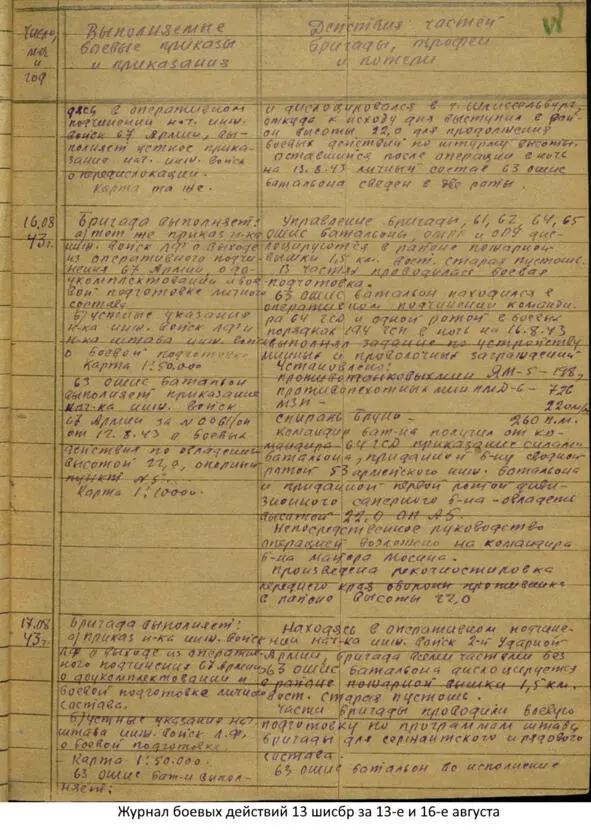 Число, м-ц и год
Выполняемые боевые приказы и приказания
Действия частей бригады, трофеи и потери
дясь в оперативном
подчинении нач. инж.
войск 67 Армии, вы-
полняет устное прика-
зание нач. инж. войск
о передислокации.
Карта та же.
и дислоцировался в г. Шлиссельбург,
откуда к исходу дня выступил в рай-
он высоты 22,0 для продолжения
боевых действий по штурму высоты.
Оставшийся после операции в ночь
на 13.8.43 личный состав 63 ошис
батальона сведен в две роты.
16.08
43г.
Бригада выполняет:
а) тот же приказ н-ка
инж. войск ЛФ о выходе
из оперативного подчи-
нения 67 Армии, о до-
укомплектовании и бое-
вой подготовке личного
состава.
б) устные указания
н-ка инж. войск ЛФ и
н-ка штаба инж. войск
о боевой подготовке
Карта 1:50.000
63 ошис батальон
выполняет приказание
нач-ка инж. войск
67 Армии за №0061/оп
от 12.8.43 о боевых
действиях по овладению
высотой 22,0, опорным
пунктом №5.
Карта 1:10000.
Управление бригады, 61, 62, 64, 65
ошис батальоны, и ОПУ дис-
лоцируются в районе пожарной
вышки 1,5 км. вост. Старая Пустошь.
В частях проводилась боевая
подготовка.
63 ошис батальон находился в
оперативном подчинении команди-
ра 64 ГСД и одной ротой в боевых
порядках 194 ГСП в ночь на 16.8.43
выполнял задание по устройству
минных и проволочных заграждений
Установлено:
противотанковых мин ЯМ-5 - 198,
противопехотных мин ПМД-6 - 726
МЗП - 220
спираль Бруно - 260 п.м.
Командир бат-на получил от ко-
мандира 64 ГСД приказание силами
батальона, приданной б-ну сводной
ротой 53 армейского инж. батальона
и приданной первой ротой диви-
зионного саперного б-на - овладеть
высотой 22,0 ОП №5.
Непосредственное руководство
операцией возложено на командира
б-на майора Мосина.
Произведена рекогносцировка
переднего края обороны противника
в районе высоты 22,0
17.08
43г.
Бригада выполняет:
а) Приказ н-ка инж. войск
ЛФ о выходе из оператив-
ного подчинения 67 Армии
о доукомплектовании и
боевой подготовке личного
состава.
б) устные указания нач.
штаба инж. войск Л.Ф.
о боевой подготовке
Карта 1:50.000.
63 ошис бат-н выпол-
няет:
Находясь в оперативном подчине-
нии нач-ка инж. войск 2-й Ударной
Армии, бригада всеми частями без
63 ошис батальона дислоцируется
в районе пожарной вышки 1,5 км.
вост. Старая Пустошь.
Части бригады проводили боевую
подготовку по программам штаба
бригады для сержантского и рядового
состава.
63 ошис батальон во исполнение
Журнал боевых действий 13 шисбр за 13-е и 16-е августа